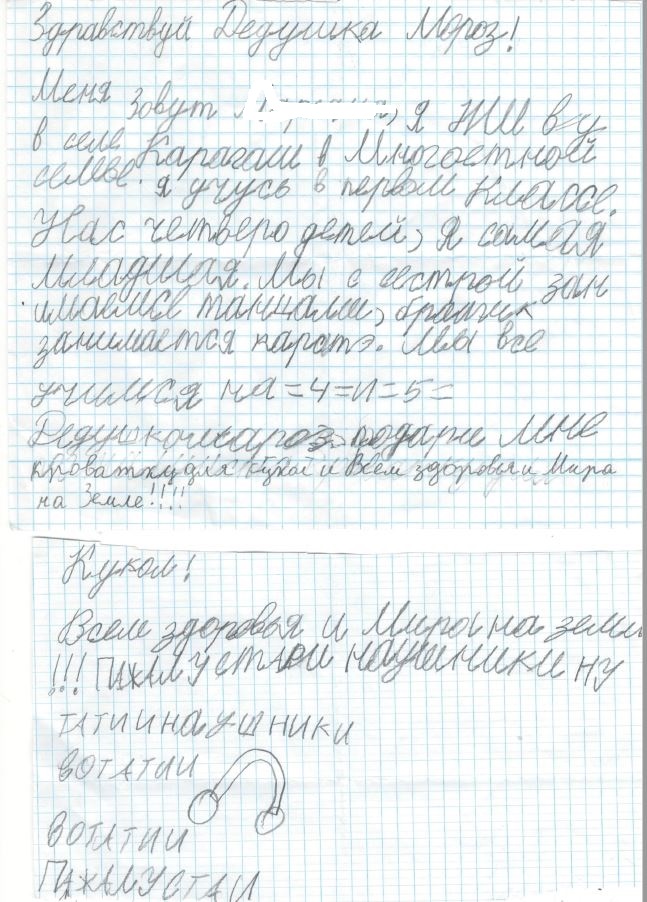 Здравствуй Дедушка Мороз!
Меня зовут , я жи ву
в селе Карагаш в Многоетной
семье. я учусь в первом классе.
Нас четверо детей, я самая
младшая. Мы с сестрой зан
имаемся танцами, братик
занимается каратэ. Мы все
учимся на =4=и=5=
подари мне
кроватку для кукол и Всем здоровья и Мира
на Земле!!!!
Кукол!
Всем здоровья и Мира на земле
!!! ПАЖАЛУСТА И наушники ну
ТАТИИ НАУШНИКИ
ВОТАТИИ
ВОТАТИИ
ПАЖАЛУСТАИ